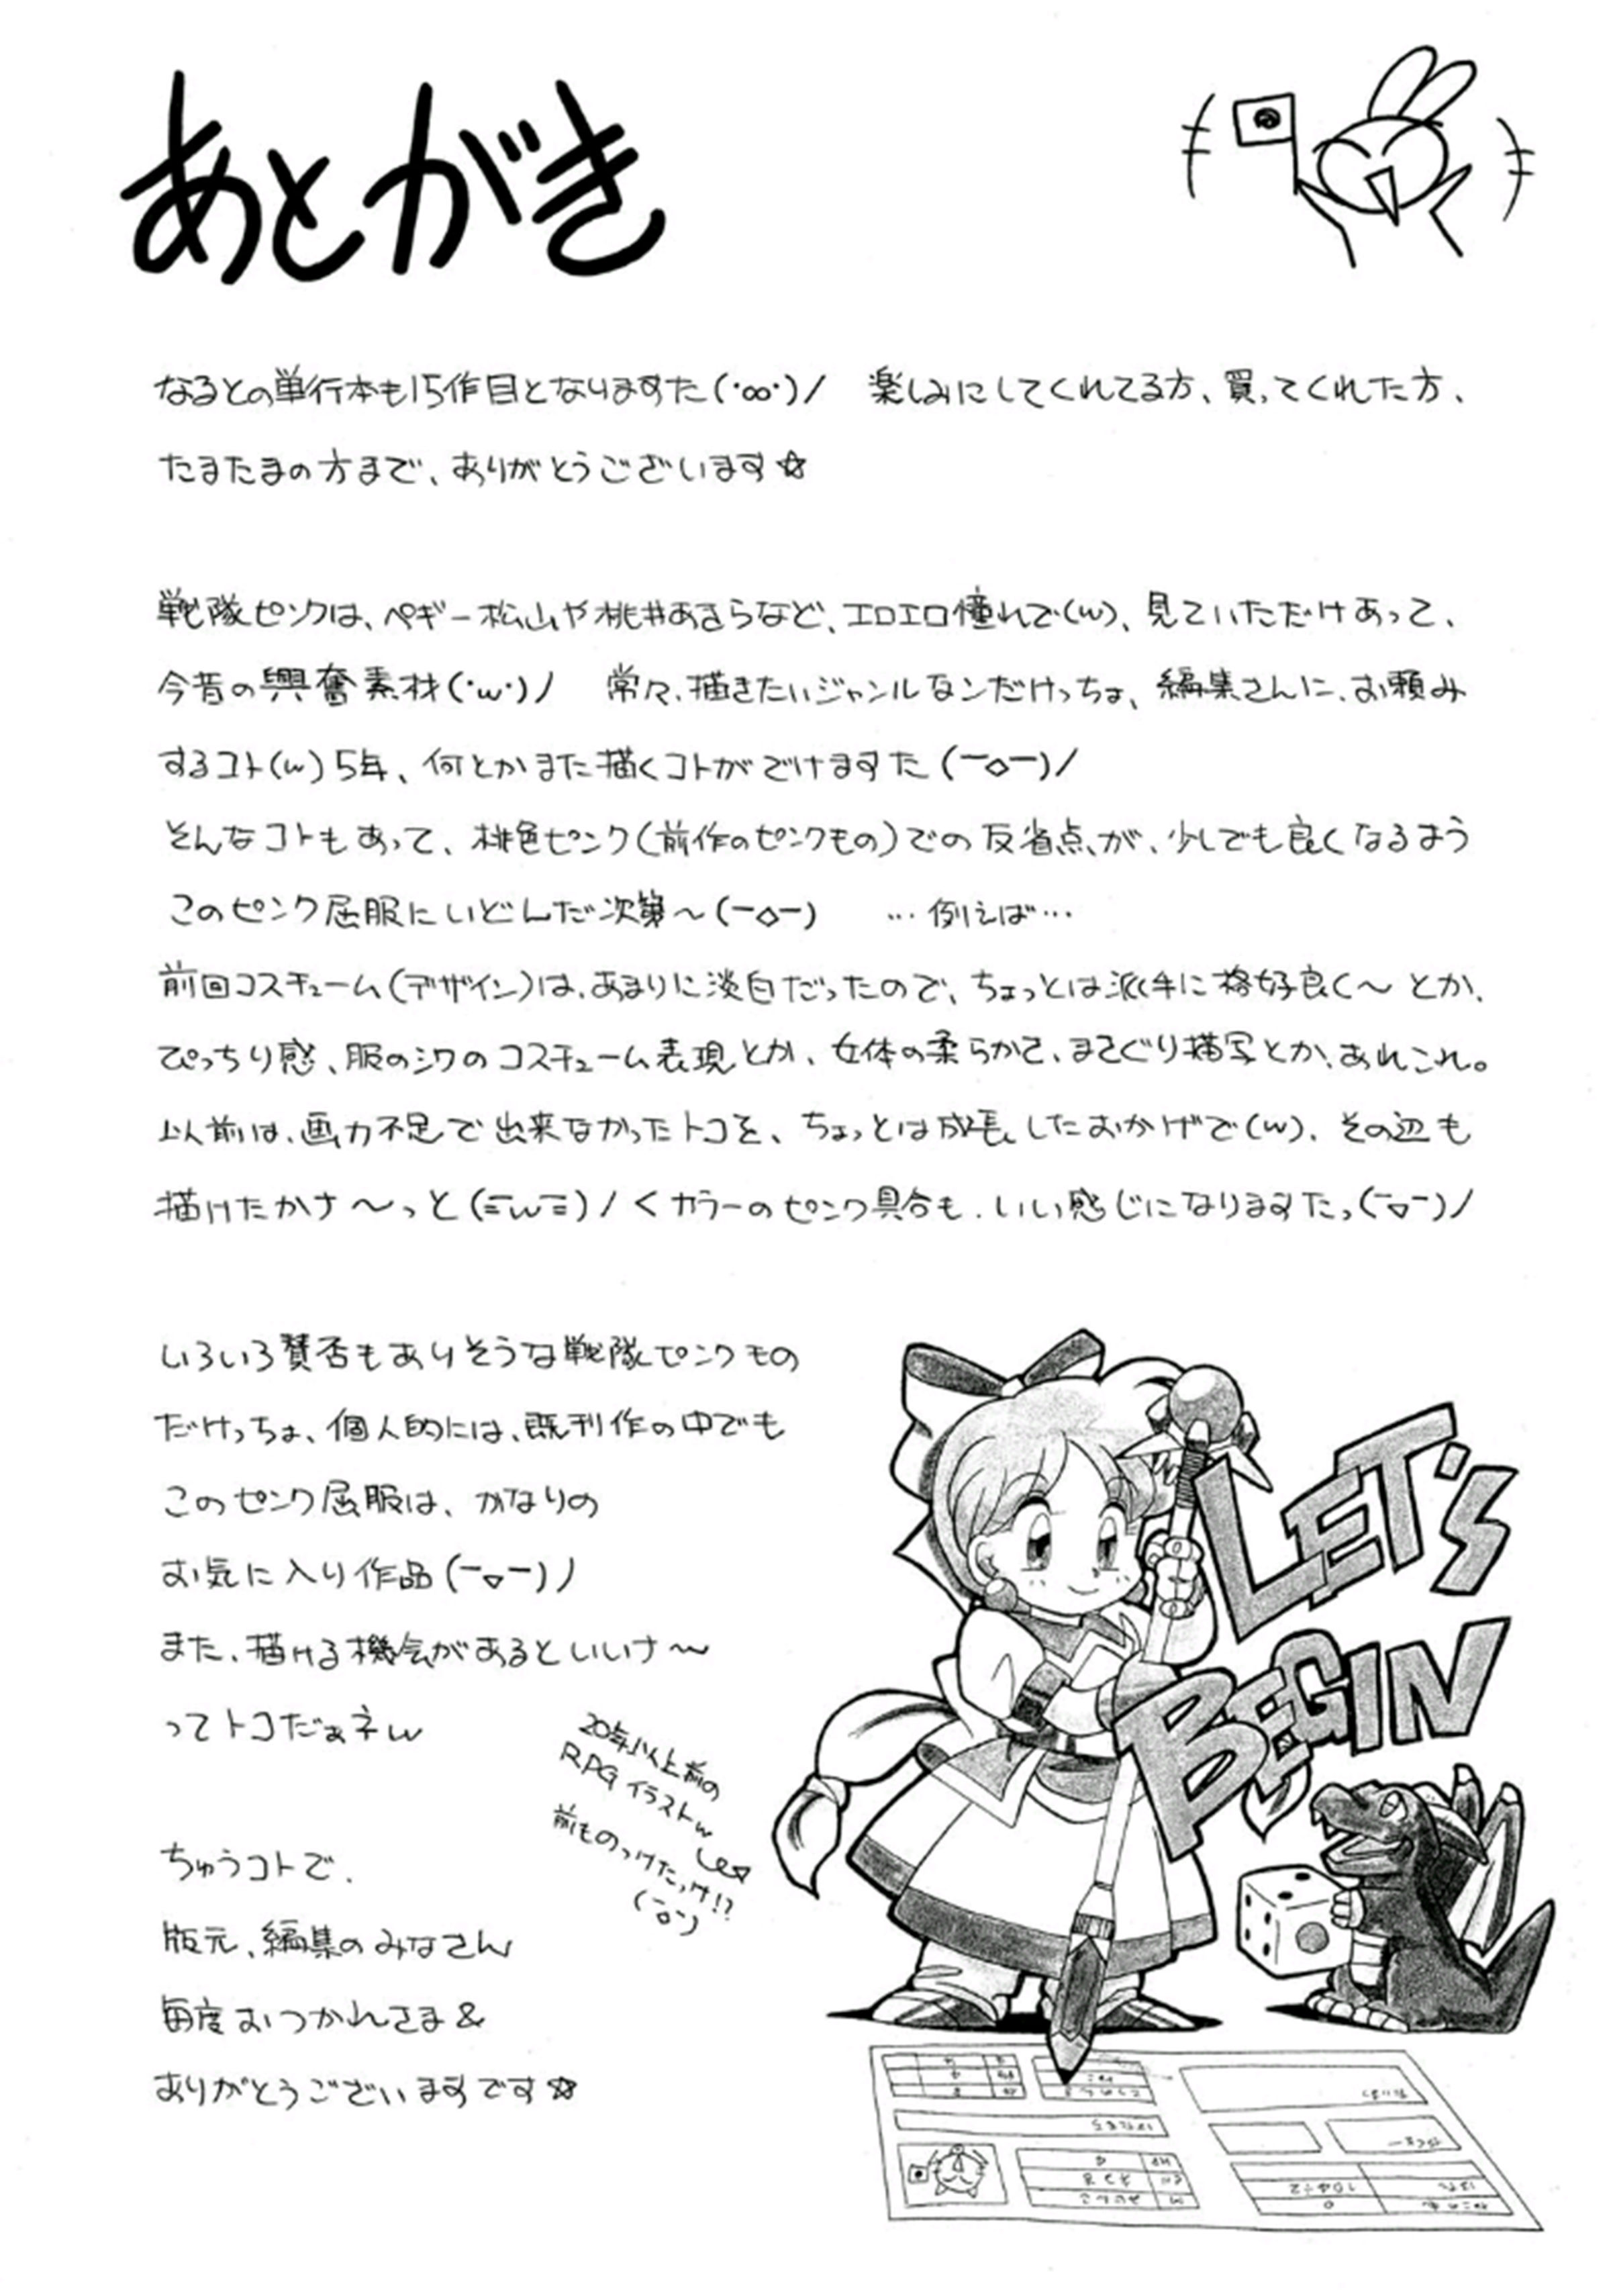 あとがき
なるとの単行本も15作目となりますた(･∞･)/ 楽しみにしてくれてる方、買ってくれた方、
たまたまの方まで、ありがとうございます☆
戦隊ピンクは、ペギー松山や桃井あきらなど、エロエロ憧れで(w)、見ていただけあって、
今昔の興奮素材(･w･)ノ 常々、描きたいジャンルなンだけっちょ、編集さんに、お頼み
するコト(w)5年、何とかまた描くコトがでけますた(ー◇ー)/
そんなコトもあって、桃色ピンク(前作のピンクもの)での反省点が、少しでも良くなるよう
このピンク屈服にいどんだ次第～(ー◇ー) …例えば…
前回コスチューム(デザイン)は、あまりに淡白だったので、ちょっとは派手に格好良く～とか、
ぴっちり感、服のシワのコスチューム表現とか、女体の柔らかさ、まさぐり描写とか、あれこれ。
以前は、画力不足で出来なかったトコを、ちょっとは成長したおかげで(w)、その辺も
描けたかナ～っと(≡w≡)/<カラーのピンク具合も、いい感じになりますたっ(ー▽ー)/
いろいろ賛否もありそうな戦隊ピンクもの
だけっちょ、個人的には、既刊作の中でも
このピンク屈服は、かなりの
お気に入り作品(ー▽ー)ノ
また、描ける機会があるといいナ～
ってトコだぁネw
20年以上前の
RPGイラストw
前ものっけたっけ!?
(ーoー)
ちゅうコトで、
版元、編集のみなさん
毎度おつかれさま&
ありがとうございますです☆
LET'S
BEGIN